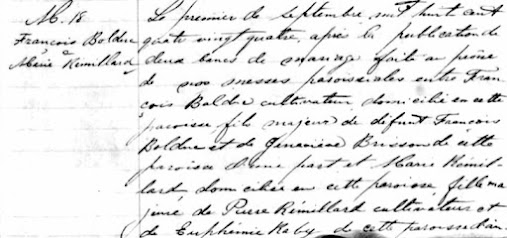 M. 18.
François Bolduc
&
Marie Rémillard
Le premier de septembre mil huit cent
quatre vingt quatre, après la publication de
deux bancs de mariage faite au prône
de nos messes paroissiales entre Fran
çois Bolduc cultivateur domicilié en cette
paroisse fils majeur de défunt François
Bolduc et de Geneviève Brisson de cette
paroisse d'une part et Marie Rémil-
lard domiciliée en cette paroisse, fille ma
jeure de Pierre Rémillard cultivateur et
de Euphémie Raby de cette paroisse d'au